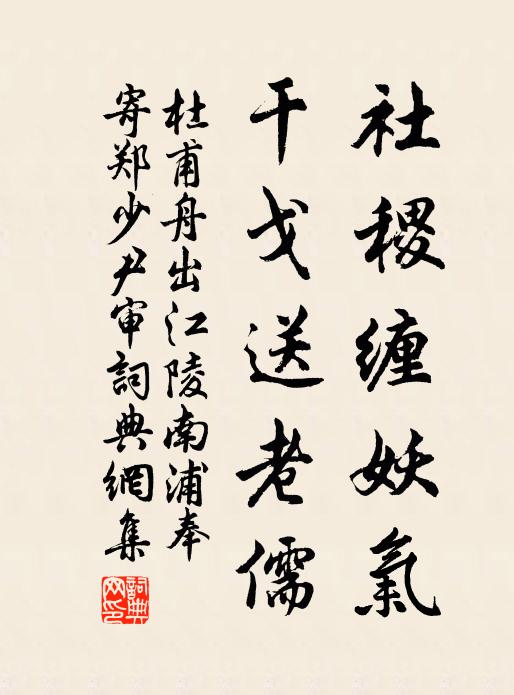 社稷缠妖氣
干戈送老儒
杜甫舟出江陵南浦奉
寄郑少尹审詞典網集
詞典網印